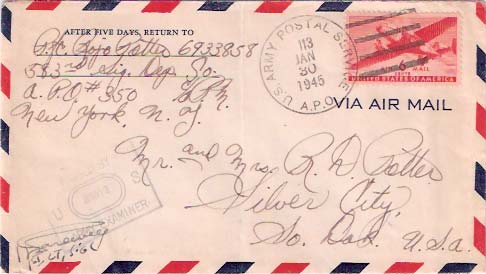 AFTER FIVE DAYS, RETURN TO
Pfc. Potter 6933858
583rd Sig. Dep. Co.
A.P.O. #350
New York, N.Y.
U.S. ARMY POSTAL SERVICE
113
JAN
30
1945
A.P.O.
6
CENTS
AIR MAIL
UNITED STATES OF AMERICA
VIA AIR MAIL
Mr. and Mrs. R. D. Potter
Silver City,
So. Dak. U.S.A.
U S
EXAMINER